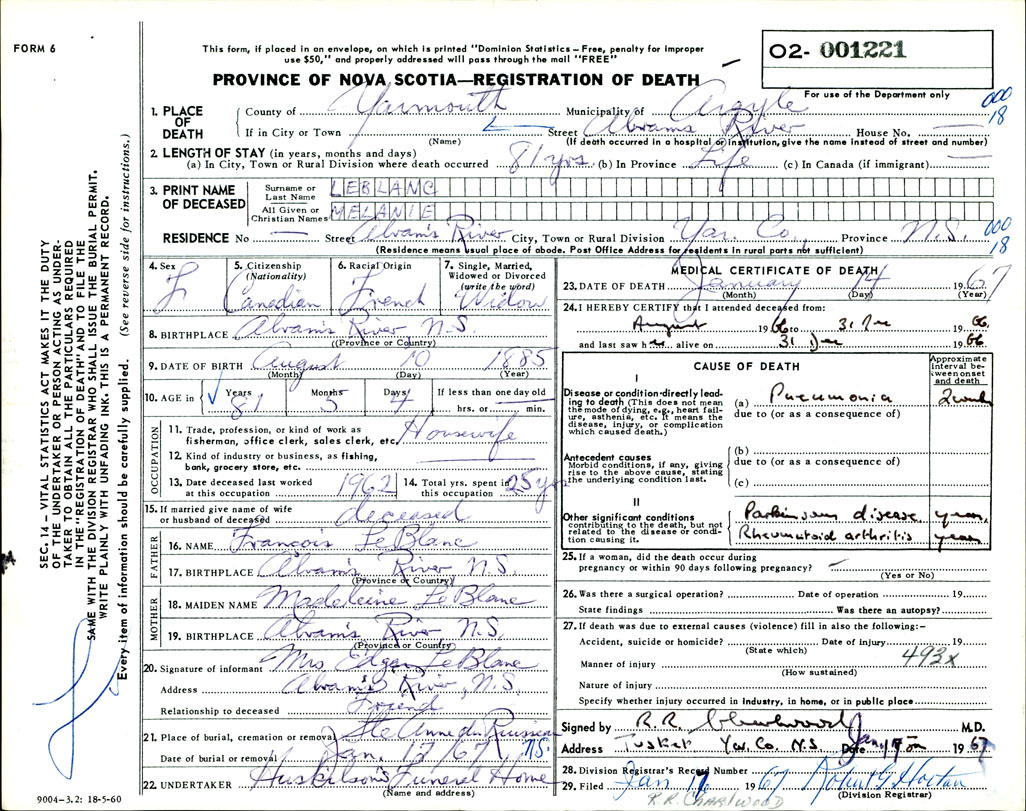 FORM 6
This form, if placed in an envelope, on which is printed "Dominion Statistics – Free, penalty for improper
use $50," and properly addressed will pass through the mail "FREE"
PROVINCE OF NOVA SCOTIA—REGISTRATION OF DEATH
O2- 001221
For use of the Department only
000
18
1. PLACE OF DEATH
County of Yarmouth Municipality of Argyle
If in City or Town Street Abrams River House No.
(Name) (If death occurred in a hospital or institution, give the name instead of street and number)
2. LENGTH OF STAY (in years, months and days)
(a) In City, Town or Rural Division where death occurred 81 yrs (b) In Province Life (c) In Canada (if immigrant)
3. PRINT NAME OF DECEASED
Surname or Last Name LEBLANC
All Given or Christian Names MELANIE
000
18
RESIDENCE No Street Abram's River City, Town or Rural Division Yar. Co. Province N.S.
(Residence means usual place of abode. Post Office Address for residents in rural parts not sufficient)
4. Sex F
5. Citizenship (Nationality) Canadian
6. Racial Origin French
7. Single, Married, Widowed or Divorced (write the word) Widow
8. BIRTHPLACE Abram's River N.S.
(Province or Country)
9. DATE OF BIRTH August 10 1885
(Month) (Day) (Year)
10. AGE in Years 81 Months 5 Days 4 If less than one day old
hrs. or min.
OCCUPATION
11. Trade, profession, or kind of work as
fisherman, office clerk, sales clerk, etc. Housewife
12. Kind of industry or business, as fishing,
bank, grocery store, etc.
13. Date deceased last worked at this occupation 1962
14. Total yrs. spent in this occupation 25 yrs
15. If married give name of wife
or husband of deceased deceased
FATHER
16. NAME Francois LeBlanc
17. BIRTHPLACE Abram's River N.S.
(Province or Country)
MOTHER
18. MAIDEN NAME Madeleine LeBlanc
19. BIRTHPLACE Abram's River N.S.
(Province or Country)
20. Signature of informant Mrs Edgar LeBlanc
Address Abram's River, N.S.
Relationship to deceased Friend
21. Place of burial, cremation or removal Ste Anne du Ruisseau
Date of burial or removal Jan. 17/67 N.S.
22. UNDERTAKER Huskilson's Funeral Home
(Name and address)
9004–3.2: 18-5-60
MEDICAL CERTIFICATE OF DEATH
23. DATE OF DEATH January 14 1967
(Month) (Day) (Year)
24. I HEREBY CERTIFY that I attended deceased from:
August 1966 to 31 Dec 1966
and last saw h alive on 31 Dec 1966
CAUSE OF DEATH
Approximate interval between onset and death
I
Disease or condition directly leading to death (This does not mean the mode of dying, e.g., heart failure, asthenia, etc. It means the disease, injury, or complication which caused death.)
(a) Pneumonia 2 weeks
due to (or as a consequence of)
Antecedent causes
Morbid conditions, if any, giving rise to the above cause, stating the underlying condition last.
(b)
due to (or as a consequence of)
(c)
II
Other significant conditions
contributing to the death, but not related to the disease or condition causing it.
Parkinson disease years
Rheumatoid arthritis years
25. If a woman, did the death occur during
pregnancy or within 90 days following pregnancy?
(Yes or No)
26. Was there a surgical operation? Date of operation 19
State findings Was there an autopsy?
27. If death was due to external causes (violence) fill in also the following:–
Accident, suicide or homicide? Date of injury 19
(State which)
493x
Manner of injury
(How sustained)
Nature of injury
Specify whether injury occurred in industry, in home, or in public place
Signed by R.R. Charlwood M.D.
Address Tusket Yar. Co. N.S. Date 1967
28. Division Registrar's Record Number
29. Filed Jan 1967 Robert G Horton
(Division Registrar)
R.R. CHARLWOOD
SEC. 14 – VITAL STATISTICS ACT MAKES IT THE DUTY
OF THE UNDERTAKER OR PERSON ACTING AS UNDER-
TAKER TO OBTAIN ALL THE PARTICULARS REQUIRED
IN THE "REGISTRATION OF DEATH" AND TO FILE THE
SAME WITH THE DIVISION REGISTRAR WHO SHALL ISSUE THE BURIAL PERMIT.
WRITE PLAINLY WITH UNFADING INK. THIS IS A PERMANENT RECORD.
Every item of information should be carefully supplied. (See reverse side for instructions.)